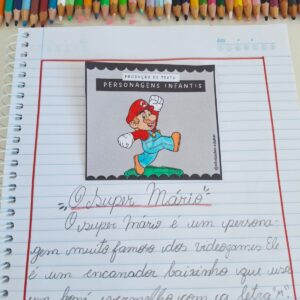 PRODUÇÃO DE TEXTO
PERSONAGENS INFANTIS
"O Super Mário"
O super Mário é um persona-
gem muito famoso dos videogames. Ele
é um encanador baixinho que usa
um boné vermelho com a letra "m"